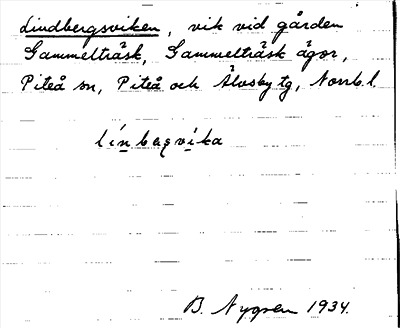 Lindbergsviken, vik vid gården
Gammelträsk, Gammelträsk ägor,
Piteå sn, Piteå och Älvsby tg, Norrb. l.
línbaqvika
B. Nygren 1934.